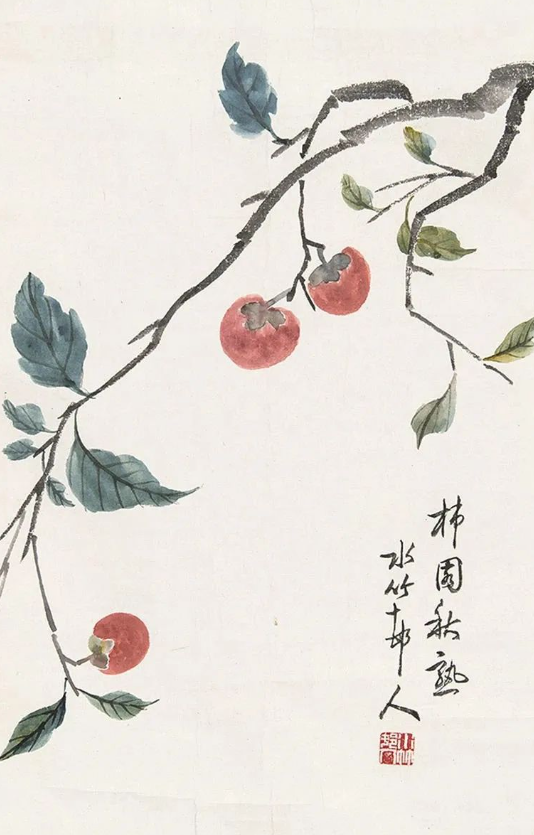 柿園秋熟
水竹邨人